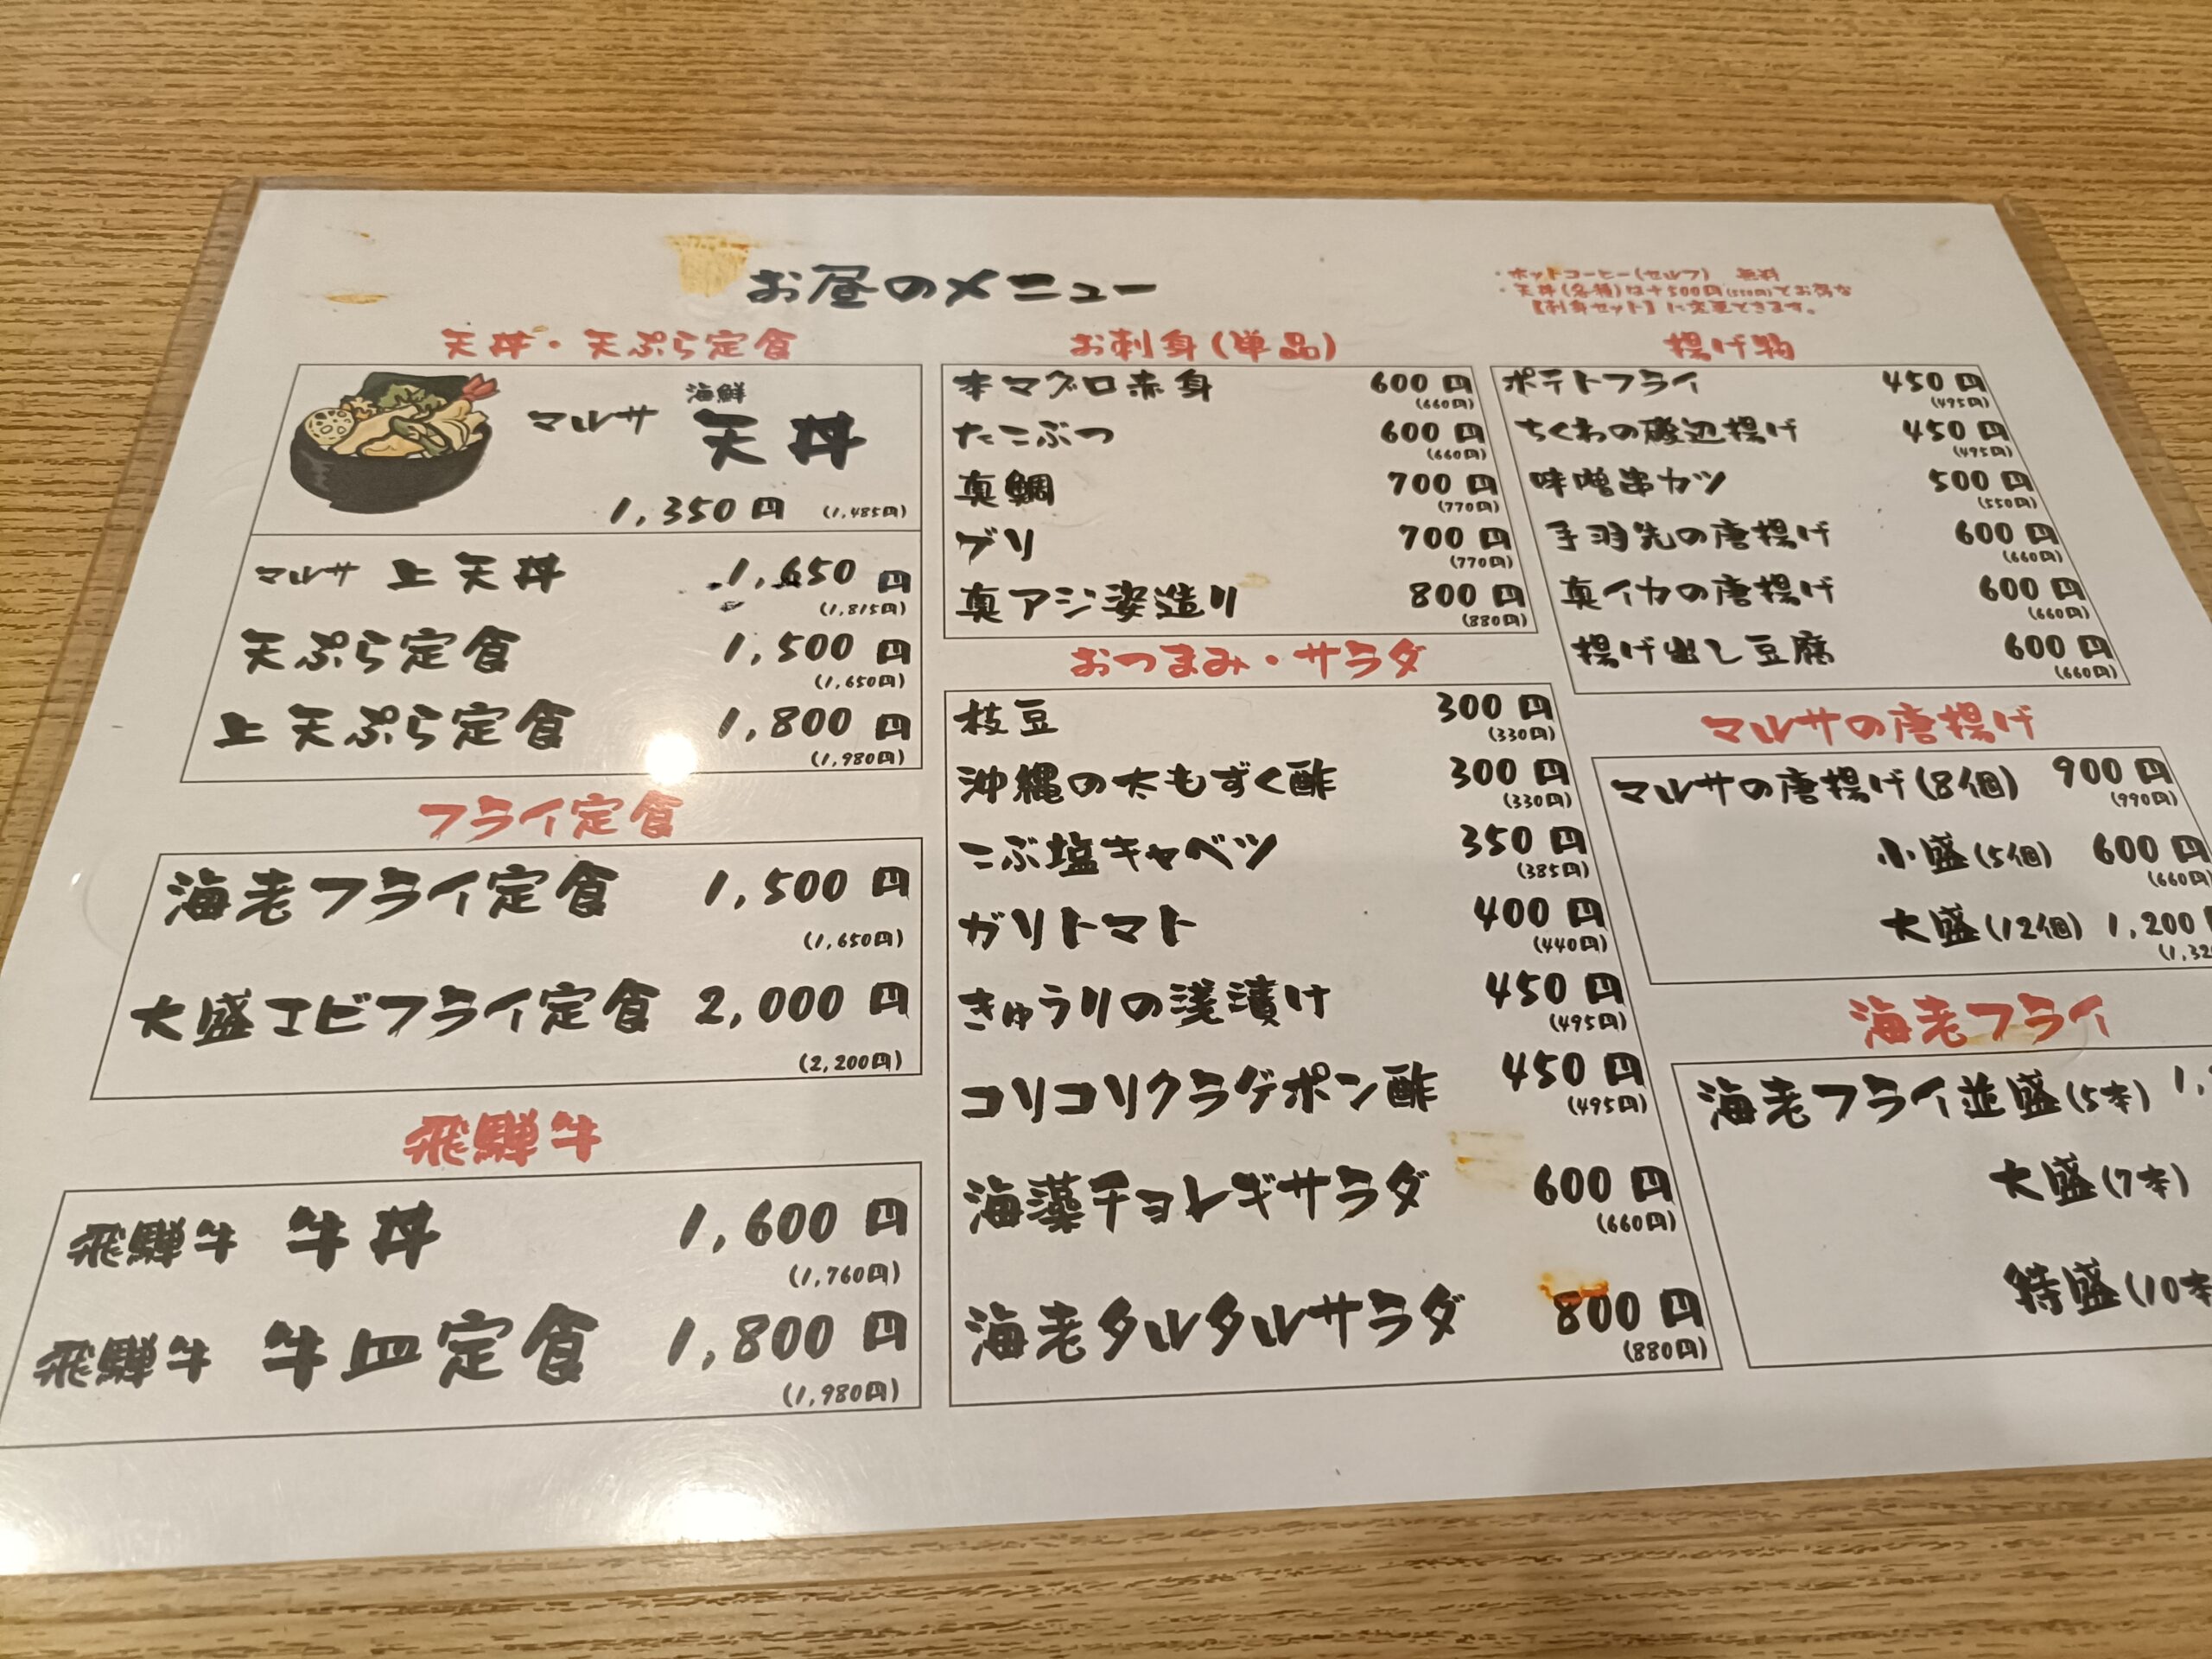 お昼のメニュー
・ホットコーヒー(セルフ) 無料
・天丼(各種)は+500円(550円)でお得な
【刺身セット】に変更できます。
天丼・天ぷら定食
マルサ 海鮮 天丼
1,350円 (1,485円)
マルサ 上天丼 1,650円
(1,815円)
天ぷら定食 1,500円
(1,650円)
上天ぷら定食 1,800円
(1,980円)
フライ定食
海老フライ定食 1,500円
(1,650円)
大盛エビフライ定食 2,000円
(2,200円)
飛騨牛
飛騨牛 牛丼 1,600円
(1,760円)
飛騨牛 牛皿定食 1,800円
(1,980円)
お刺身(単品)
本マグロ赤身 600円
(660円)
たこぶつ 600円
(660円)
真鯛 700円
(770円)
ブリ 700円
(770円)
真アジ姿造り 800円
(880円)
おつまみ・サラダ
枝豆 300円
(330円)
沖縄の太もずく酢 300円
(330円)
こぶ塩キャベツ 350円
(385円)
ガリトマト 400円
(440円)
きゅうりの浅漬け 450円
(495円)
コリコリクラゲポン酢 450円
(495円)
海藻チョレギサラダ 600円
(660円)
海老タルタルサラダ 800円
(880円)
揚げ物
ポテトフライ 450円
(495円)
ちくわの磯辺揚げ 450円
(495円)
味噌串カツ 500円
(550円)
手羽先の唐揚げ 600円
(660円)
真イカの唐揚げ 600円
(660円)
揚げ出し豆腐 600円
(660円)
マルサの唐揚げ
マルサの唐揚げ(8個) 900円
(990円)
小盛(5個) 600円
(660円)
大盛(12個) 1,200
(1,32
海老フライ
海老フライ並盛(5本) 1,
大盛(7本)
特盛(10本